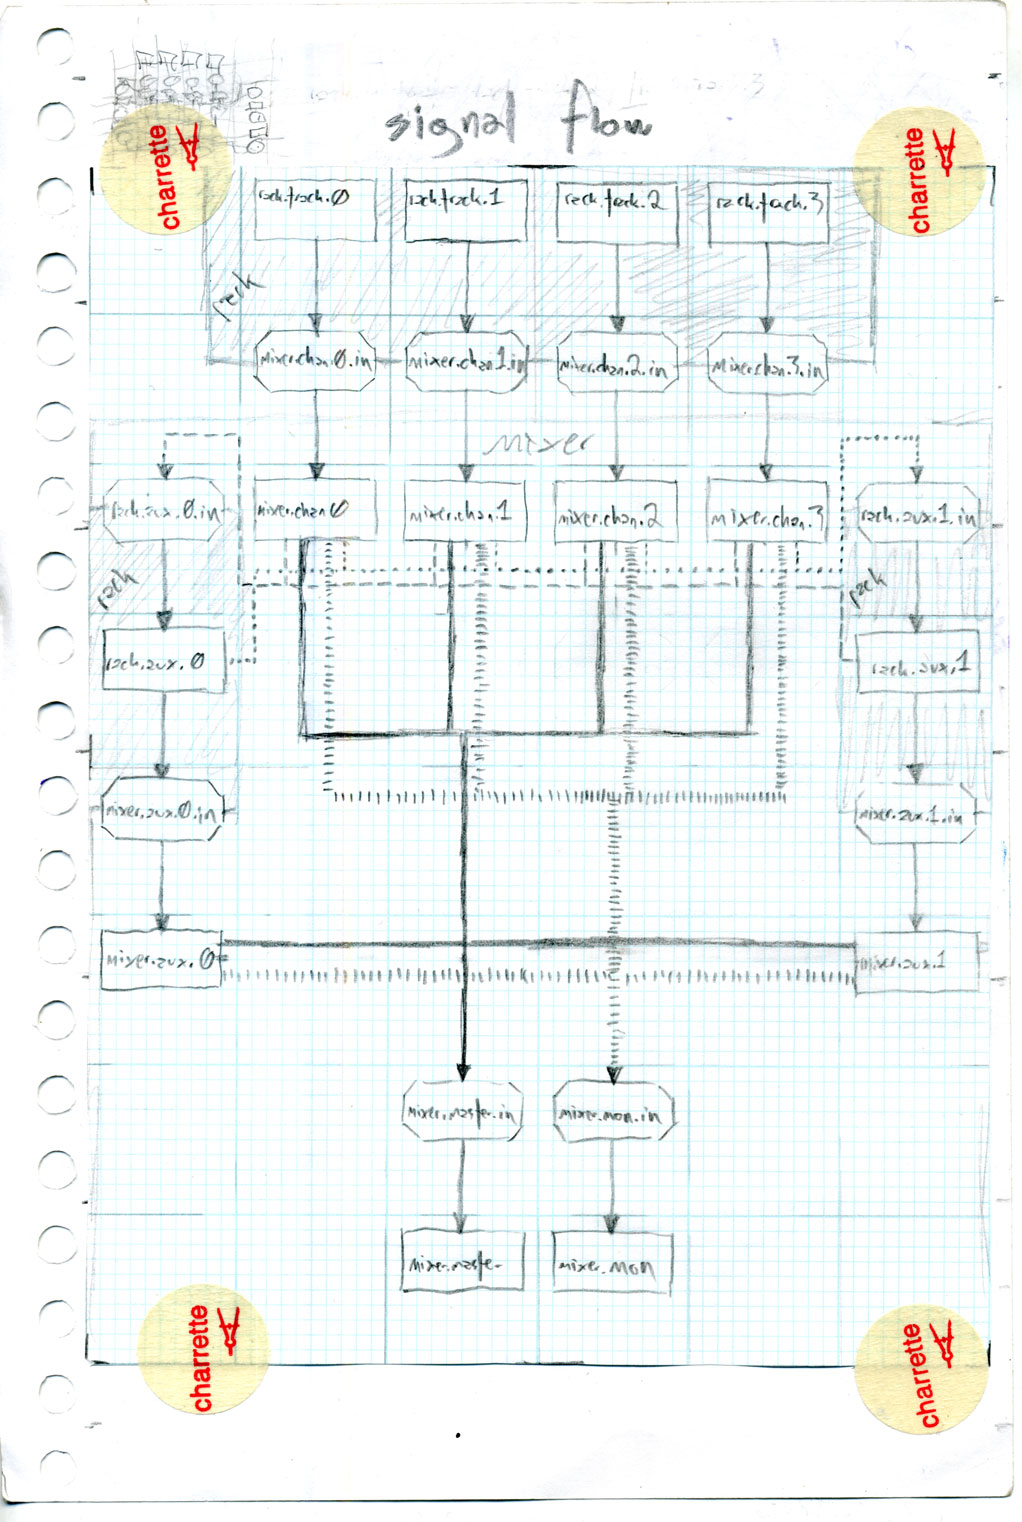 signal flow
charrette
charrette
rack.track.0
rack.track.1
rack.track.2
rack.track.3
rack
mixer.chan.0.in
mixer.chan.1.in
mixer.chan.2.in
mixer.chan.3.in
mixer
rack.aux.0.in
mixer.chan0
mixer.chan.1
mixer.chan.2
mixer.chan.3
rack.aux.1.in
rack
rack
rack.aux.0
rack.aux.1
mixer.aux.0.in
mixer.aux.1.in
mixer.aux.0
mixer.aux.1
mixer.master.in
mixer.mon.in
mixer.master
mixer.mon
charrette
charrette